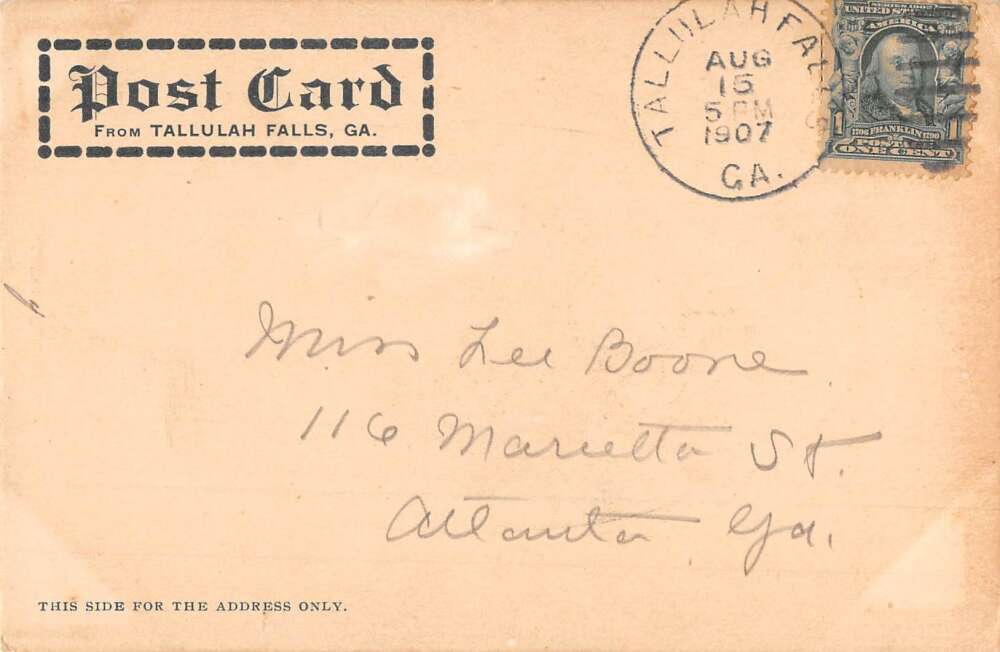 Post Card
FROM TALLULAH FALLS, GA.
TALLULAH FALLS
AUG
15
5 PM
1907
GA.
SERIES 1902
UNITED STATES OF
AMERICA
1 1706 FRANKLIN 1790 1
POSTAGE
ONE CENT
Miss Lee Boone
116 Marietta St.
Atlanta, Ga.
THIS SIDE FOR THE ADDRESS ONLY.